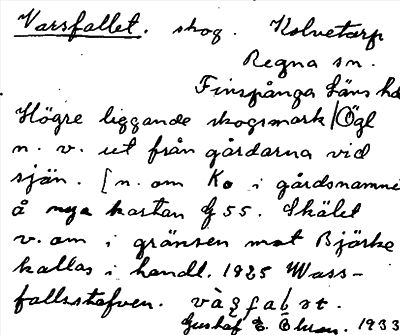 Varsfallet. skog. Kolvetorp
Regna sn.
Finspånga läns hd
Högre liggande skogsmark /Ögl
n. v. ut från gårdarna vid
sjön. [n. om Ko i gårdsnamnet
å nya kartan G 55. Skälet
v. om i gränsen mot Björke
kallas i handl. 1825 Wass-
fallsstafven.
Gustaf E. Olsson. 1933